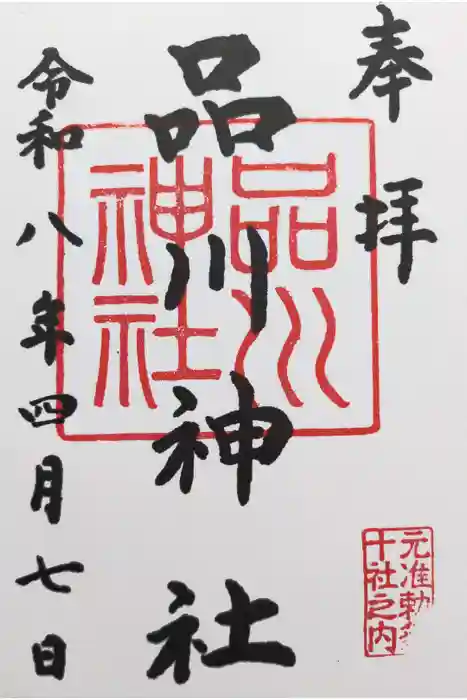 奉拝
品川神社
令和八年四月七日
品川
神社
元准勅
十社之内